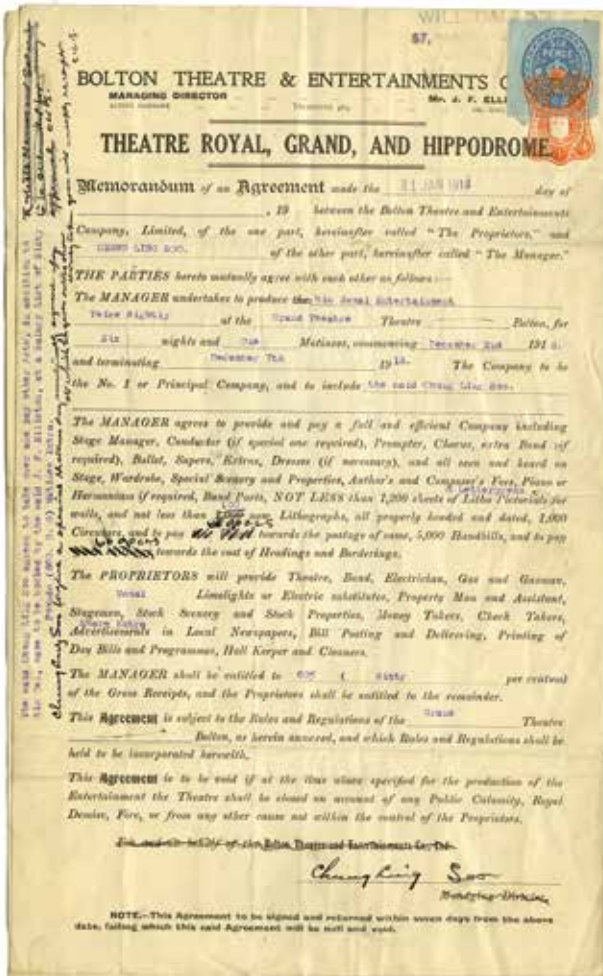 WILL
57,
BOLTON THEATRE & ENTERTAINMENTS C
MANAGING DIRECTOR Mr. J. F. ELLI
THEATRE ROYAL, GRAND, AND HIPPODROME
Memorandum of an Agreement made the 21 JAN 1918 day of
, 19 between the Bolton Theatre and Entertainments
Company, Limited, of the one part, hereinafter called "The Proprietors," and
CHUNG LING SOO. of the other part, hereinafter called "The Manager."
THE PARTIES hereto mutually agree with each other as follows:—
The MANAGER undertakes to produce the his Usual Entertainment
Twice Nightly at the Grand Theatre Theatre Bolton, for
Six nights and One Matinee, commencing December 2nd 191
and terminating December 7th 191 The Company to be
the No. 1 or Principal Company, and to include the said Chung Ling Soo.
The MANAGER agrees to provide and pay a full and efficient Company including
Stage Manager, Conductor (if special one required), Prompter, Chorus, extra Band (if
required), Ballet, Supers, Extras, Dresses (if necessary), and all seen and heard on
Stage, Wardrobe, Special Scenery and Properties, Author's and Composer's Fees, Piano or
Harmonium if required, Band Parts, NOT LESS than 1,200 sheets of Litho Pictorials for
walls, and not less than new Lithographs, all properly headed and dated, 1,000
Circulars, and to pay towards the postage of same, 5,000 Handbills, and to pay
towards the cost of Headings and Borderings.
The PROPRIETORS will provide Theatre, Band, Electrician, Gas and Gasman,
Usual Limelights or Electric substitutes, Property Man and Assistant,
Stagemen, Stock Scenery and Stock Properties, Money Takers, Check Takers,
Advertisements in Local Newspapers, Bill Posting and Delivering, Printing of
Day Bills and Programmes, Hall Keeper and Cleaners.
The MANAGER shall be entitled to 60% ( Sixty per centum)
of the Gross Receipts, and the Proprietors shall be entitled to the remainder.
This Agreement is subject to the Rules and Regulations of the Grand Theatre
Bolton, as herein annexed, and which Rules and Regulations shall be
held to be incorporated herewith.
This Agreement is to be void if at the time above specified for the production of the
Entertainment the Theatre shall be closed on account of any Public Calamity, Royal
Demise, Fire, or from any other cause not within the control of the Proprietors.
For and on behalf of the Bolton Theatre and Entertainments Co., Ltd.
Chung Ling Soo
Managing Director
NOTE.—This Agreement to be signed and returned within seven days from the above
date, failing which this said Agreement will be null and void.
SIX
PENCE